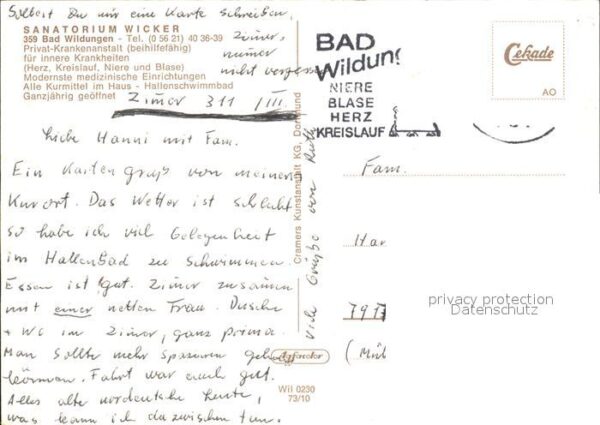 Solbert Du mir eine Karte schreiben,
Zimer,
numer
nicht vergessen
SANATORIUM WICKER
359 Bad Wildungen - Tel. (0 56 21) 40 36-39
Privat-Krankenanstalt (beihilfefähig)
für innere Krankheiten
(Herz, Kreislauf, Niere und Blase)
Modernste medizinische Einrichtungen
Alle Kurmittel im Haus - Hallenschwimmbad
Ganzjährig geöffnet
Zimer 311 / III.
Liebe Hanni mit Fam.
Ein Kartengruß von meinem
Kurort. Das Wetter ist schlecht
so habe ich viel Gelegenheit
im Hallenbad zu Schwimmen.
Essen ist gut. Zimer zusamen
mit einer netten Frau. Dusche
+ WC im Zimer, ganz prima.
Man sollte mehr spazieren gehen
können. Fahrt war auch gut.
Alles alte nordeutsche Leute,
was kann ich da zwischen tun.
viele Grüße von Ruth
Cramers Kunstanstalt KG, Dortmund
Agfacolor
Wil 0230
73/10
BAD
Wildung
NIERE
BLASE
HERZ
KREISLAUF
Cekade
AO
Fam.
Har
797
(Müh
privacy protection
Datenschutz